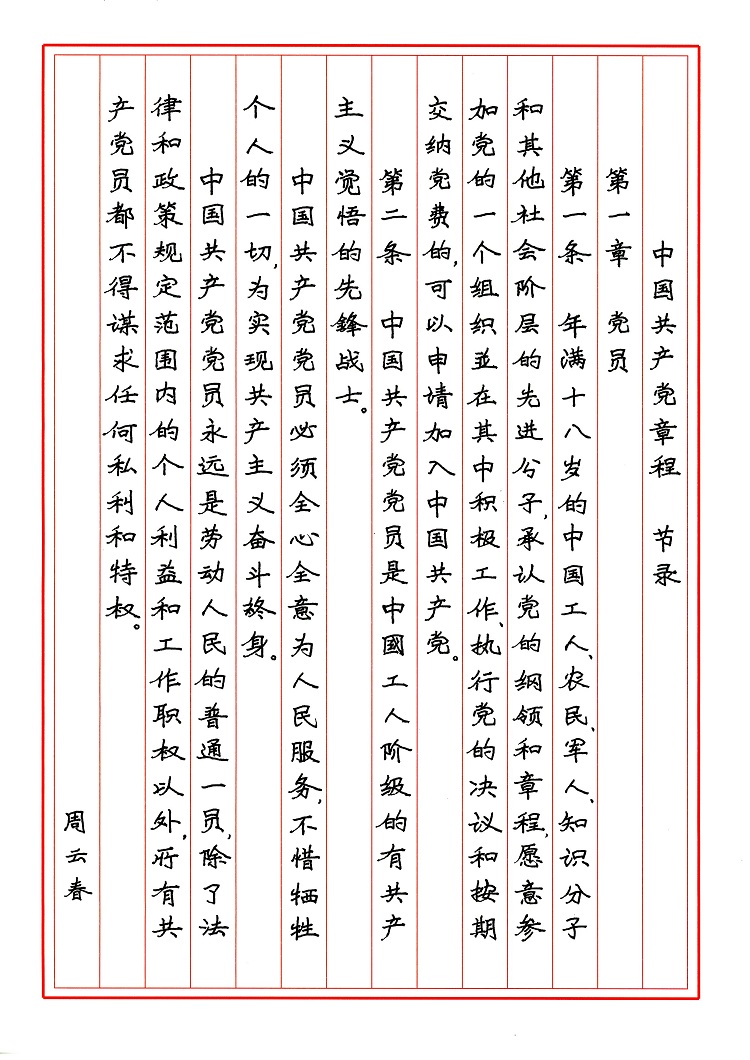 中国共产党章程 节录
第一章 党员
第一条 年满十八岁的中国工人、农民、军人、知识分子
和其他社会阶层的先进分子,承认党的纲领和章程,愿意参
加党的一个组织並在其中积极工作、执行党的决议和按期
交纳党费的,可以申请加入中国共产党。
第二条 中国共产党党员是中國工人阶级的有共产
主义觉悟的先鋒战士。
中国共产党党员必须全心全意为人民服务,不惜牺牲
个人的一切,为实现共产主义奋斗終身。
中国共产党党员永远是劳动人民的普通一员,除了法
律和政策规定范围内的个人利益和工作职权以外,所有共
产党员都不得谋求任何私利和特权。
周云春